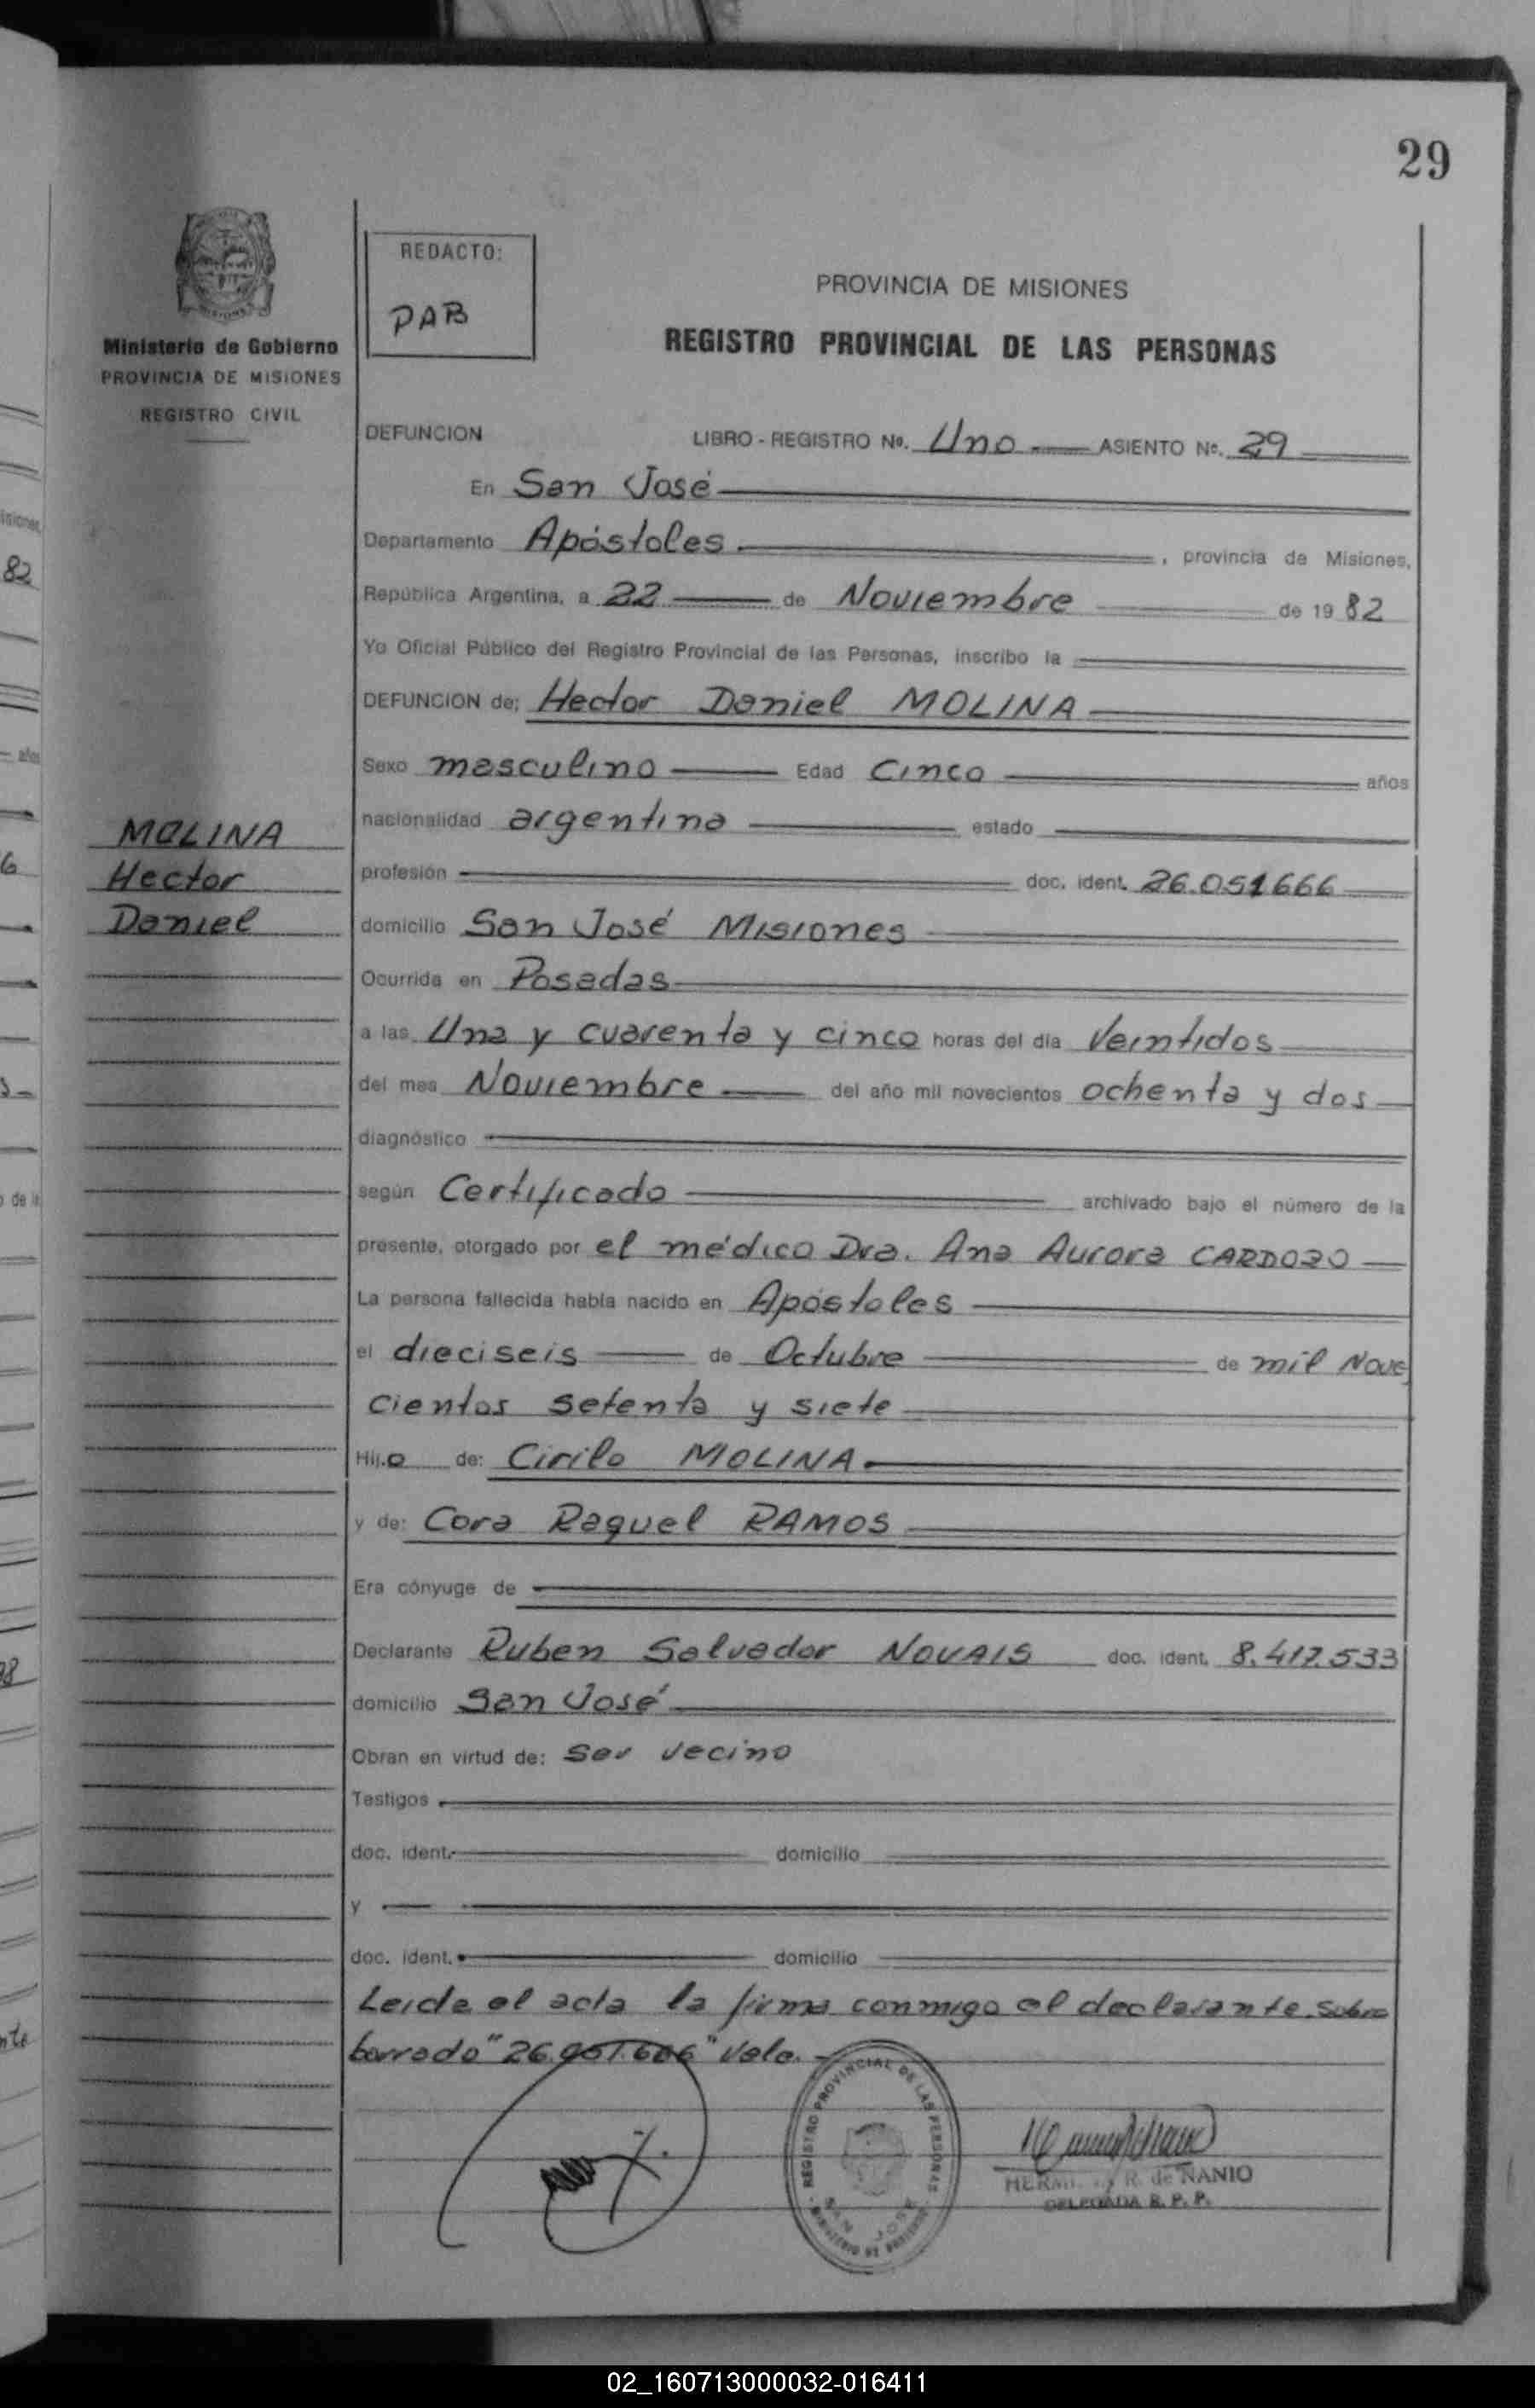 29
REDACTO:
PAB
Ministerio de Gobierno
PROVINCIA DE MISIONES
REGISTRO CIVIL
PROVINCIA DE MISIONES
REGISTRO PROVINCIAL DE LAS PERSONAS
DEFUNCION LIBRO - REGISTRO No. Uno ASIENTO No. 29
En San José
Departamento Apóstoles, provincia de Misiones,
República Argentina, a 22 de Noviembre de 1982
Yo Oficial Público del Registro Provincial de las Personas, inscribo la
DEFUNCION de: Hector Daniel MOLINA
Sexo masculino Edad Cinco años
nacionalidad argentina estado
MOLINA
Hector
Daniel
profesión doc. ident. 26.051666
domicilio San José Misiones
Ocurrida en Posadas
a las Una y cuarenta y cinco horas del día Veintidos
del mes Noviembre del año mil novecientos ochenta y dos
diagnóstico
según Certificado archivado bajo el número de la
presente, otorgado por el médico Dra. Ana Aurora CARDOZO
La persona fallecida había nacido en Apóstoles
el dieciseis de Octubre de mil Nove
cientos setenta y siete
Hijo de: Cirilo MOLINA
y de: Cora Raquel RAMOS
Era cónyuge de
Declarante Ruben Salvador NOVAIS doc. ident. 8.417.533
domicilio San José
Obran en virtud de: Ser vecino
Testigos
doc. ident. domicilio
y
doc. ident. domicilio
Leida el acta la firma conmigo el declarante. Sobre
borrado "26.051.666" Vale.
REGISTRO PROVINCIAL DE LAS PERSONAS
SAN JOSE
R. de NANIO
DELEGADA R. P. P.
02_160713000032-016411